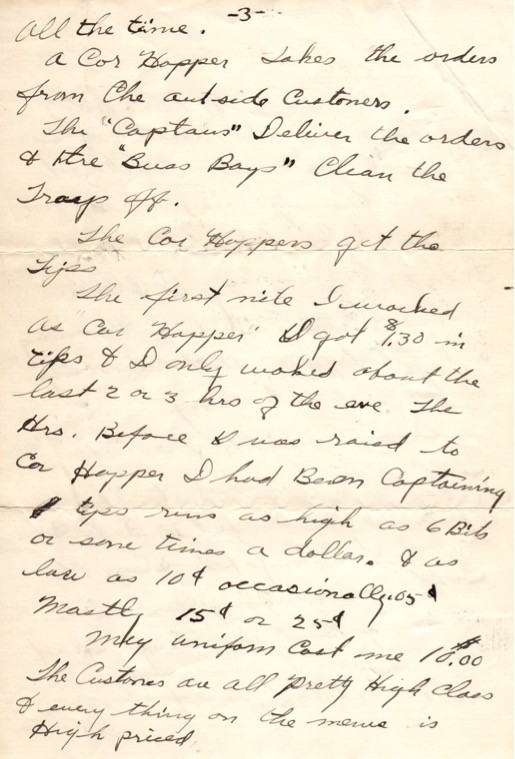 -3-
all the time.
A Car Hopper takes the orders
from the outside Customers.
The "Captains" Deliver the orders
& the "Buss Boys" Clean the
Trays off.
The Car Hoppers get the
Tips
The first nite I worked
as "Car Hopper" I got $1.30 in
tips & I only worked about the
last 2 or 3 hrs of the eve. The
Hrs. Before I was raised to
Car Hopper I had Been Captaining
tips runs as high as 6 Bits
or some times a dollar. & as
low as 10¢ occasionally .05¢
Mostly 15¢ or 25¢
My uniform Cost me $10.00
The Customers are all pretty High Class
& every thing on the menu is
High priced